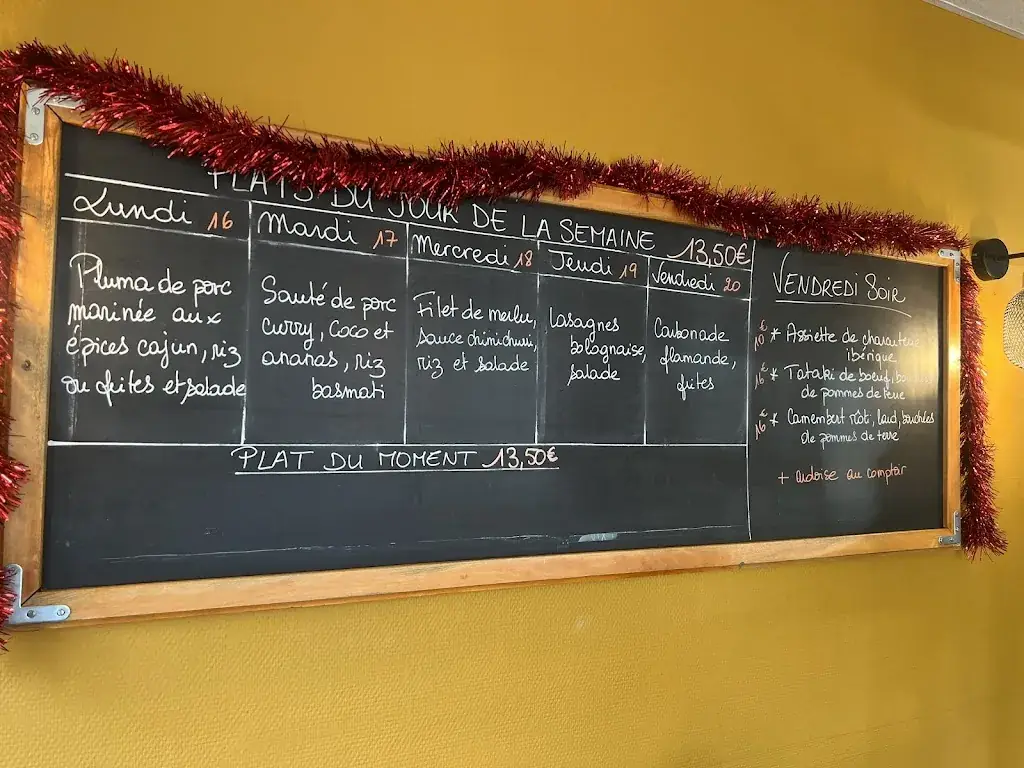 PLATS DU JOUR DE LA SEMAINE 13,50€
Lundi 16
Pluma de porc
marinée aux
épices cajun, riz
ou frites et salade
Mardi 17
Sauté de porc
curry, coco et
ananas, riz
basmati
Mercredi 18
Filet de merlu,
sauce chimichurri,
riz et salade
Jeudi 19
Lasagnes
bolognaise,
salade
Vendredi 20
Carbonade
flamande,
frites
PLAT DU MOMENT 13,50€
VENDREDI SOIR
10€ * Assiette de charcuterie
ibérique
16€ * Tataki de boeuf,
de pommes de terre
16€ * Camembert rôti, lard, bouchées
de pommes de terre
+ ardoise au comptoir